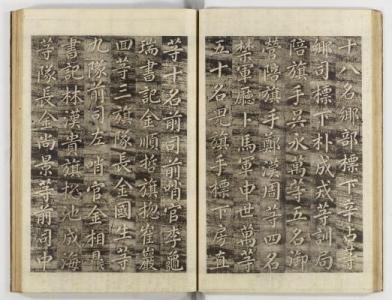 十八名鄉部標下辛占等
鄉司標下朴成戎等訓局
陪旗手吳永萬等五名御
營陪旗手鄭漢周等四名
禁軍廳下馬軍申世萬等
五十名兒旗手標下房直
等十名前司前哨官李
瑞書記金順挺旗摠崔巖
回等三旗隊長金國生等
九隊前司左哨官金相鼎
書記林漢貴旗摠池成海
等隊長金尚景等前司中